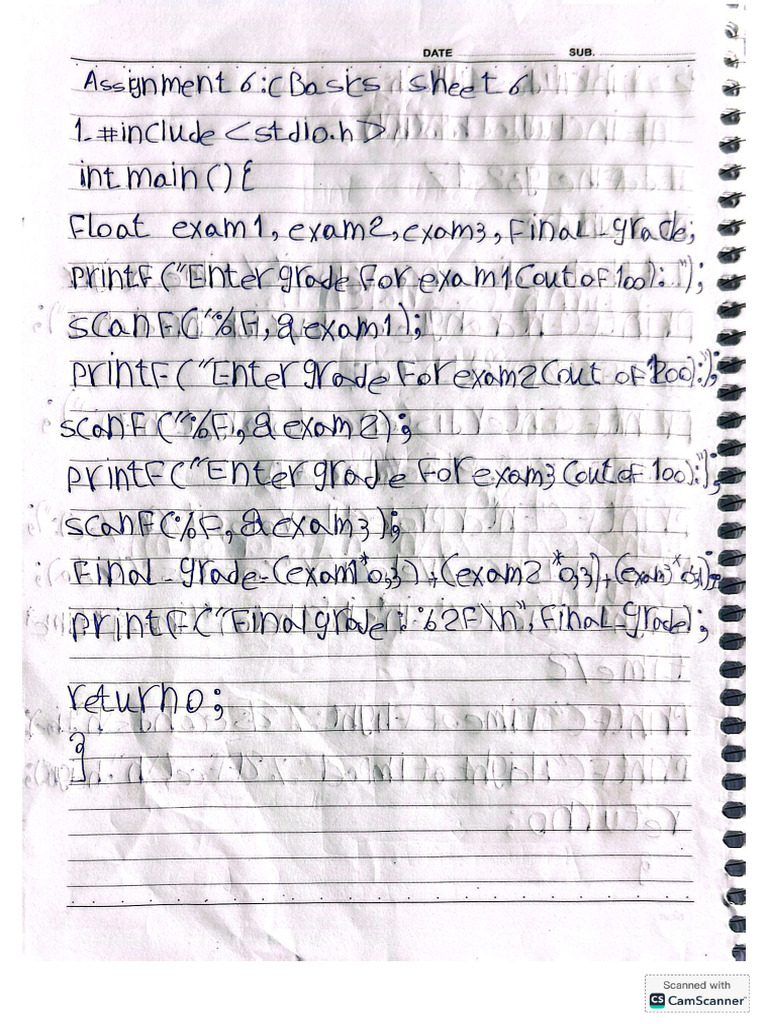 DATE SUB.
Assignment 6: C Basics sheet 6
1. #include <stdio.h>
int main () {
Float exam1, exam2, exam3, Final_grade;
printf ("Enter grade for exam1 (out of 100): ");
scanf ("%f, & exam1);
printf ("Enter grade for exam2 (out of 100):");
scanf ("%f, & exam2);
printf ("Enter grade for exam3 (out of 100):");
scanf (%f, & exam3);
Final_grade = (exam1 * 0,3) + (exam2 * 0,3) + (exam3 *
printf ("Final grade: %2f \n", Final_grade);
return 0;
}
Scanned with
CS CamScanner